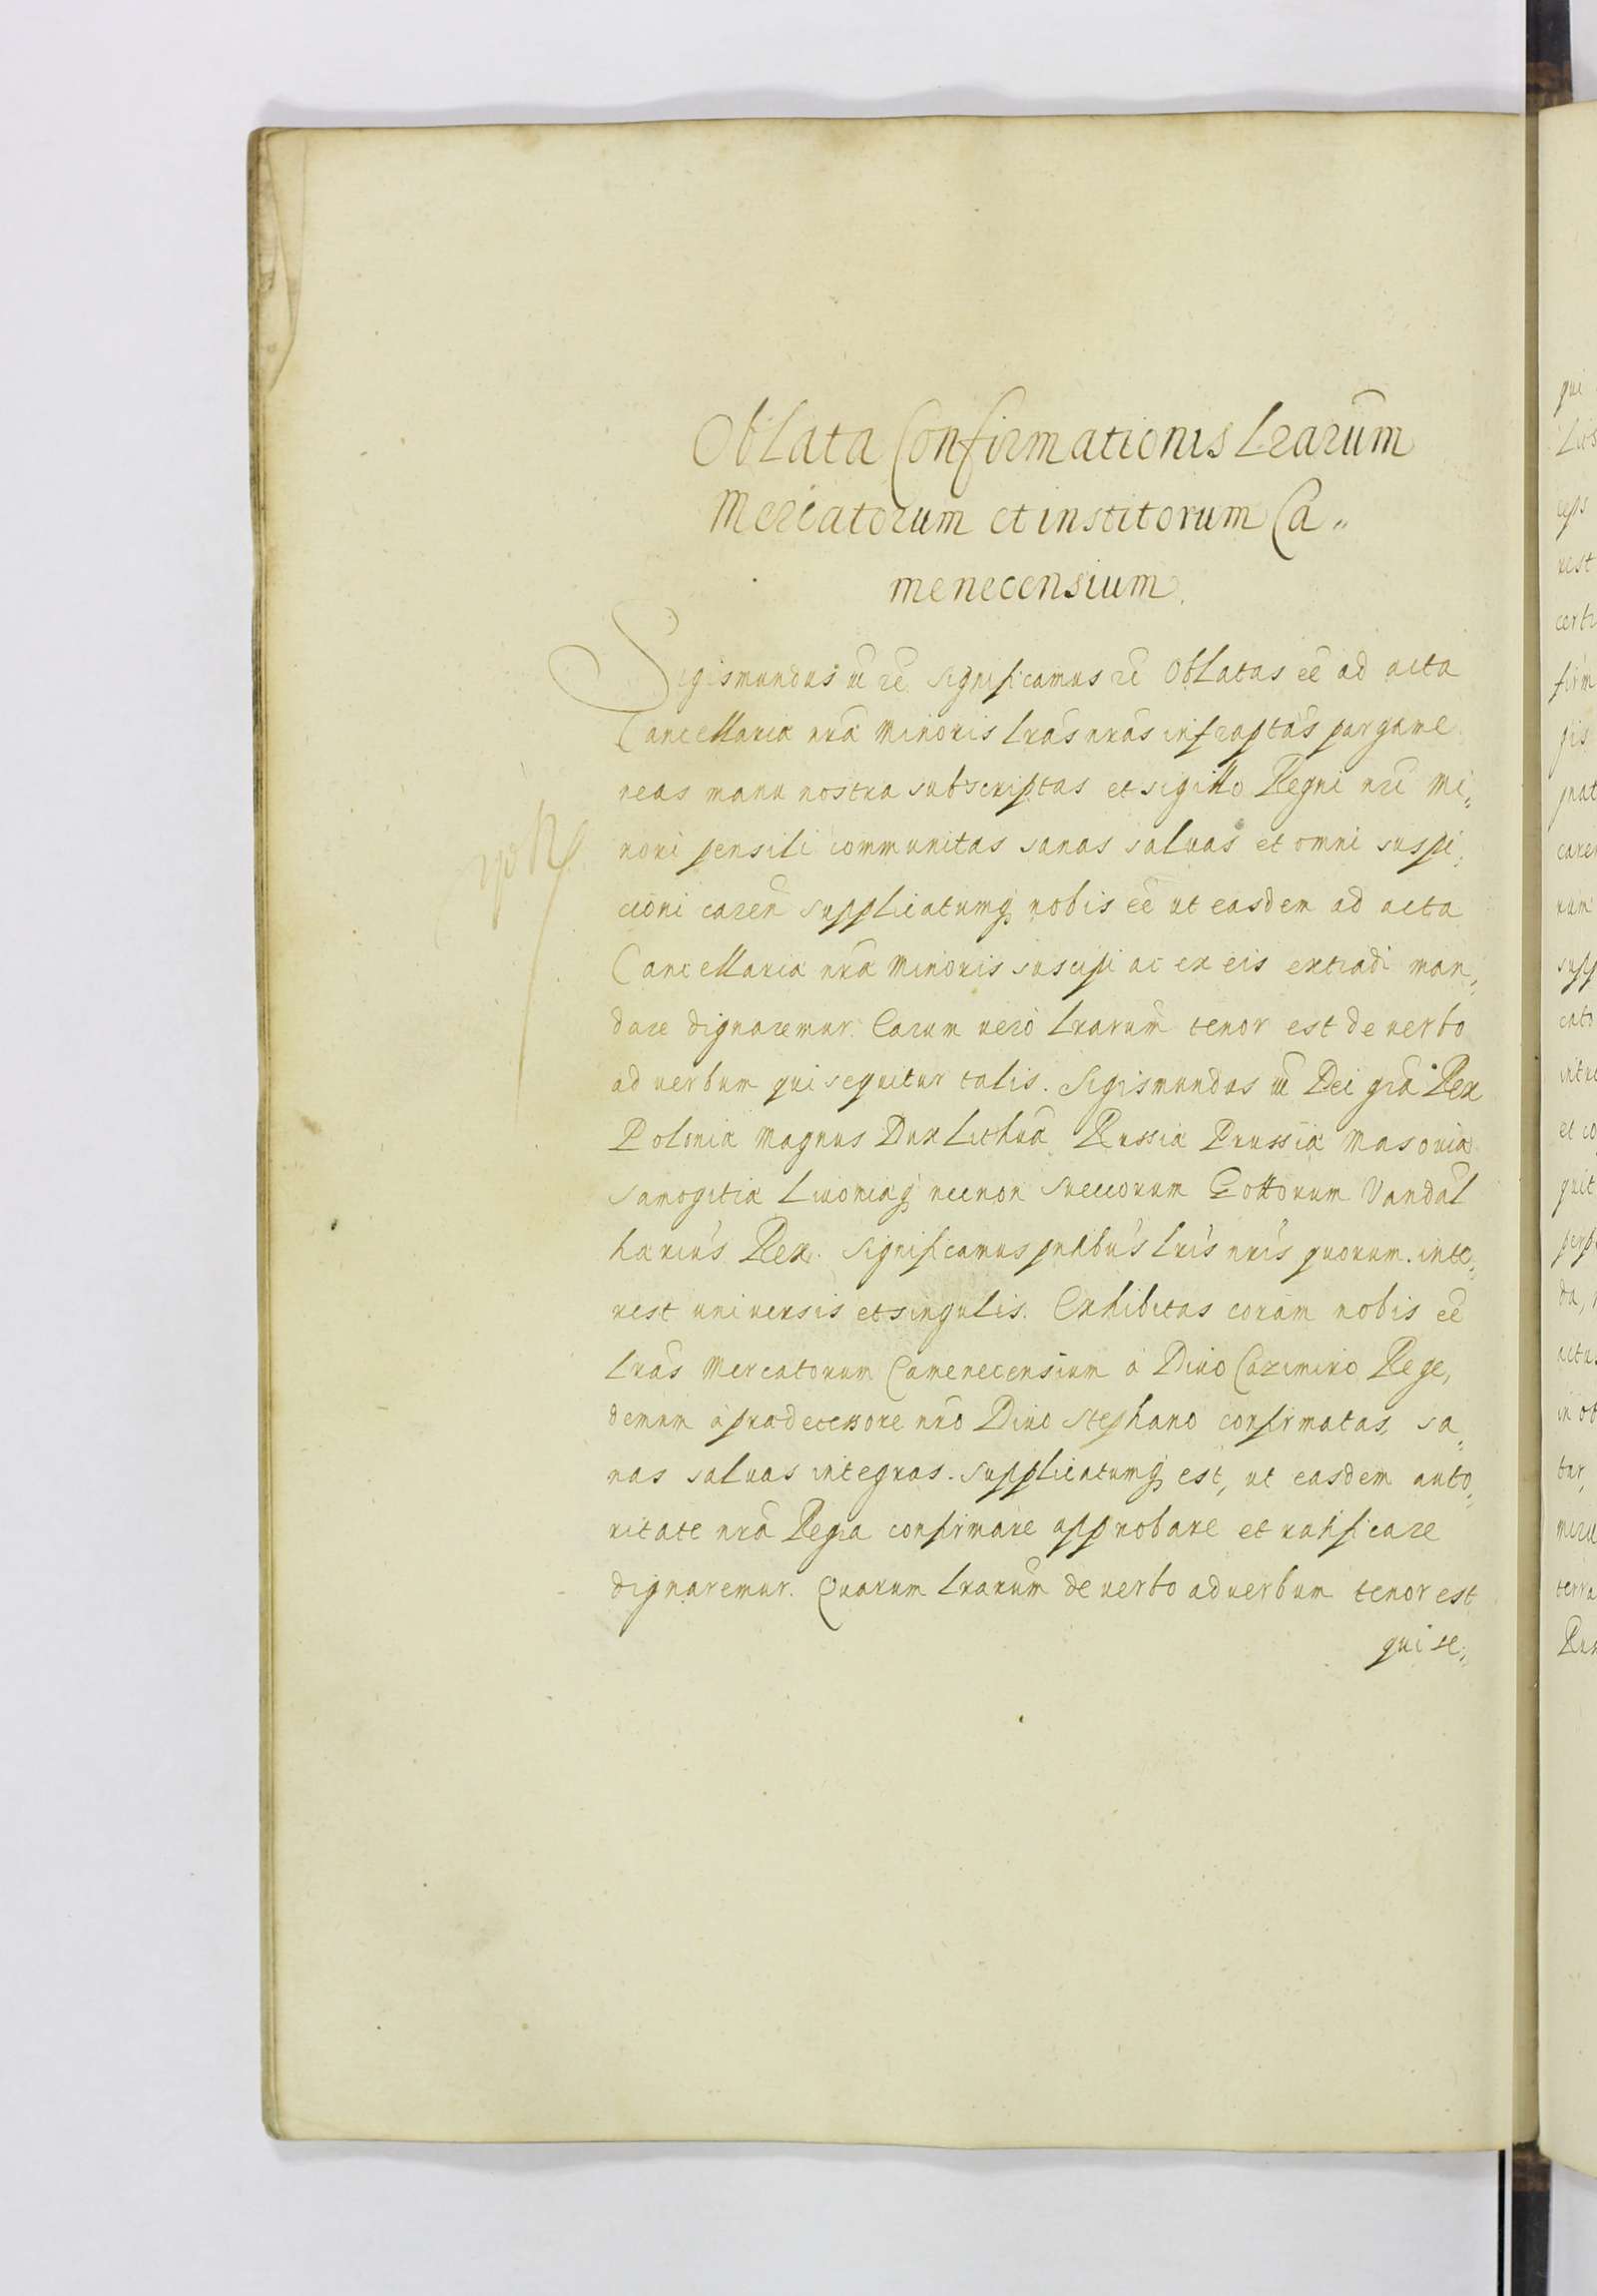 Oblata Confirmationis Lrarum̃
Mercatorum et institorum Ca„
menecensium.
Sigismundus iii rẽ. significamus rẽ Oblatas eẽ ad acta
Cancellariæ nrã Minoris lrãs nrãs infraptas pargame
neas manu nostra subscriptas et sigillo Regni nrĩ Mi„
nori pensili communitas sanas saluas et omni suspi„
cioni careñ supplicatumq nobis eẽ ut easdem ad acta
Cancellariæ nrã Minoris suscipi ac ex eis extradi man„
dare dignaremur. Earum uerò lrarum̃ tenor est de uerbo
ad uerbum qui sequitur talis. Sigismundus iii Dei grã Rex
Poloniæ Magnus Dux Lithuã Russiæ Prussiæ Masouiæ
Samogitiæ Liuoniæq necnon Sueccorum Gottorum Vandal
hærius Rex. significamus pntibus lris nris quorum. inte„
rest uniuersis et singulis. Exhibitas coram nobis eẽ
lrãs Mercatorum Camenecensium à Diuo Cazimiro Rege,
demum à prædecessore nrõ Diuo Stephano confirmatas, sa„
nas saluas integras. supplicatumq est, ut easdem auto„
ritate nrã Regia confirmare approbare et ratificare
dignaremur. Quarum lrarum̃ de uerbo ad uerbum tenor est
qui se„
qui
ceps
rest
certi
firm
gis
gnat
carer
rum
supp
cato
intu
et co
guit
perp
da,
actu
in ob
tur,
terra